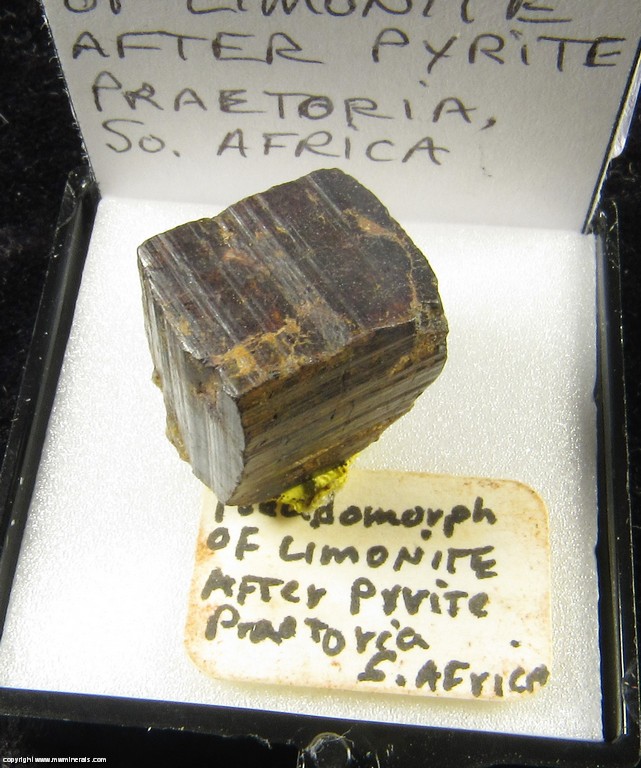 OF LIMONITE
AFTER PYRITE
PRAETORIA,
SO. AFRICA
OF LIMONITE
AFTER PYRITE
PraeToria
S. AFRICA
copyright www.mwminerals.com